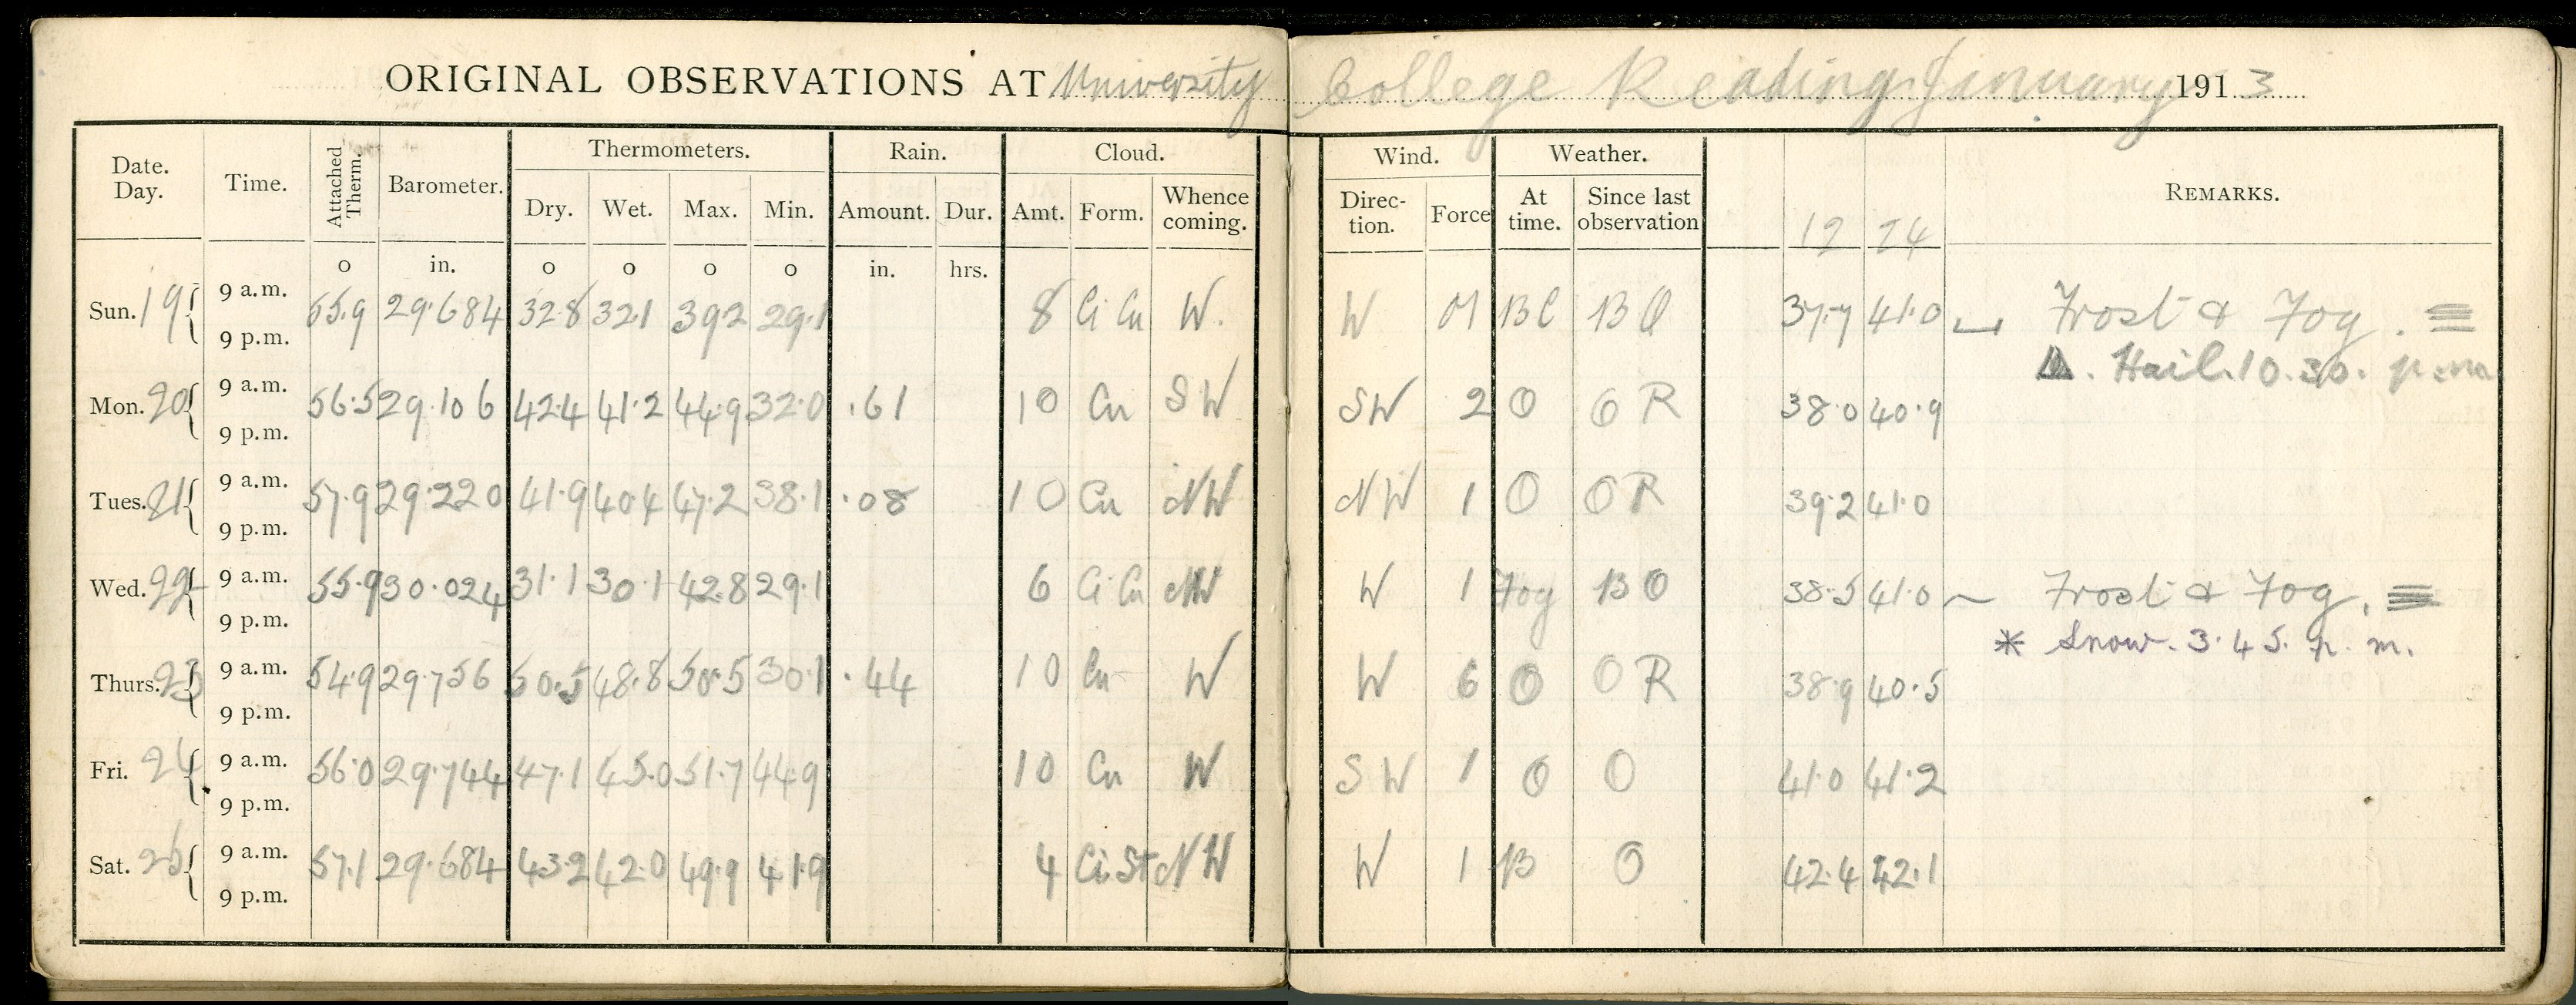 ORIGINAL OBSERVATIONS AT University College Reading January 1913
Date. Day. Time. Attached Therm. Barometer. Thermometers. Rain. Cloud. Wind. Weather. REMARKS.
Dry. Wet. Max. Min. Amount. Dur. Amt. Form. Whence coming. Direc- tion. Force At time. Since last observation 12 24
o in. o o o o in. hrs.
Sun. 19 9 a.m. 55.9 29.684 32.8 32.1 39.2 29.1 8 Ci Cu W. W 01 BC BO 37.7 41.0 Frost & Fog. ≡
9 p.m. Hail. 10.30. p.m.
Mon. 20 9 a.m. 56.5 29.106 42.4 41.2 44.9 32.0 .61 10 Cu SW SW 2 O O R 38.0 40.9
9 p.m.
Tues. 21 9 a.m. 57.9 29.220 41.9 40.4 47.2 38.1 .08 10 Cu NW NW 1 O O R 39.2 41.0
9 p.m.
Wed. 22 9 a.m. 55.9 30.024 31.1 30.1 42.8 29.1 6 Ci Cu NW W 1 Fog B O 38.5 41.0 Frost & Fog. ≡
9 p.m. * Snow. 3.45. p.m.
Thurs. 23 9 a.m. 54.9 29.756 50.5 48.8 50.5 30.1 .44 10 Cu W W 6 O O R 38.9 40.5
9 p.m.
Fri. 24 9 a.m. 56.0 29.744 47.1 45.0 51.7 44.9 10 Cu W SW 1 O O 41.0 41.2
9 p.m.
Sat. 25 9 a.m. 57.1 29.684 43.2 42.0 49.9 41.9 4 Ci St NW W 1 B O 42.4 42.1
9 p.m.